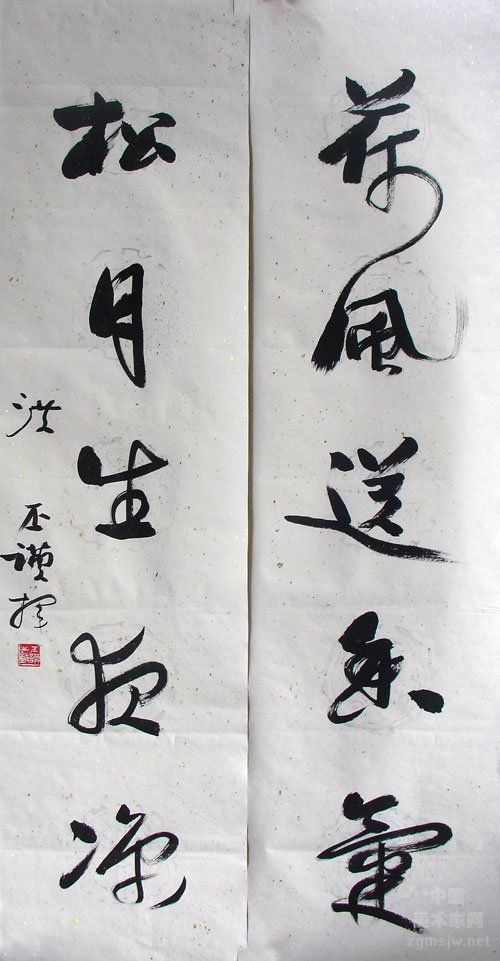 荷風送香氣
松月生夜凉
洪丕謨
中国
美术家网
zgmsjw.net